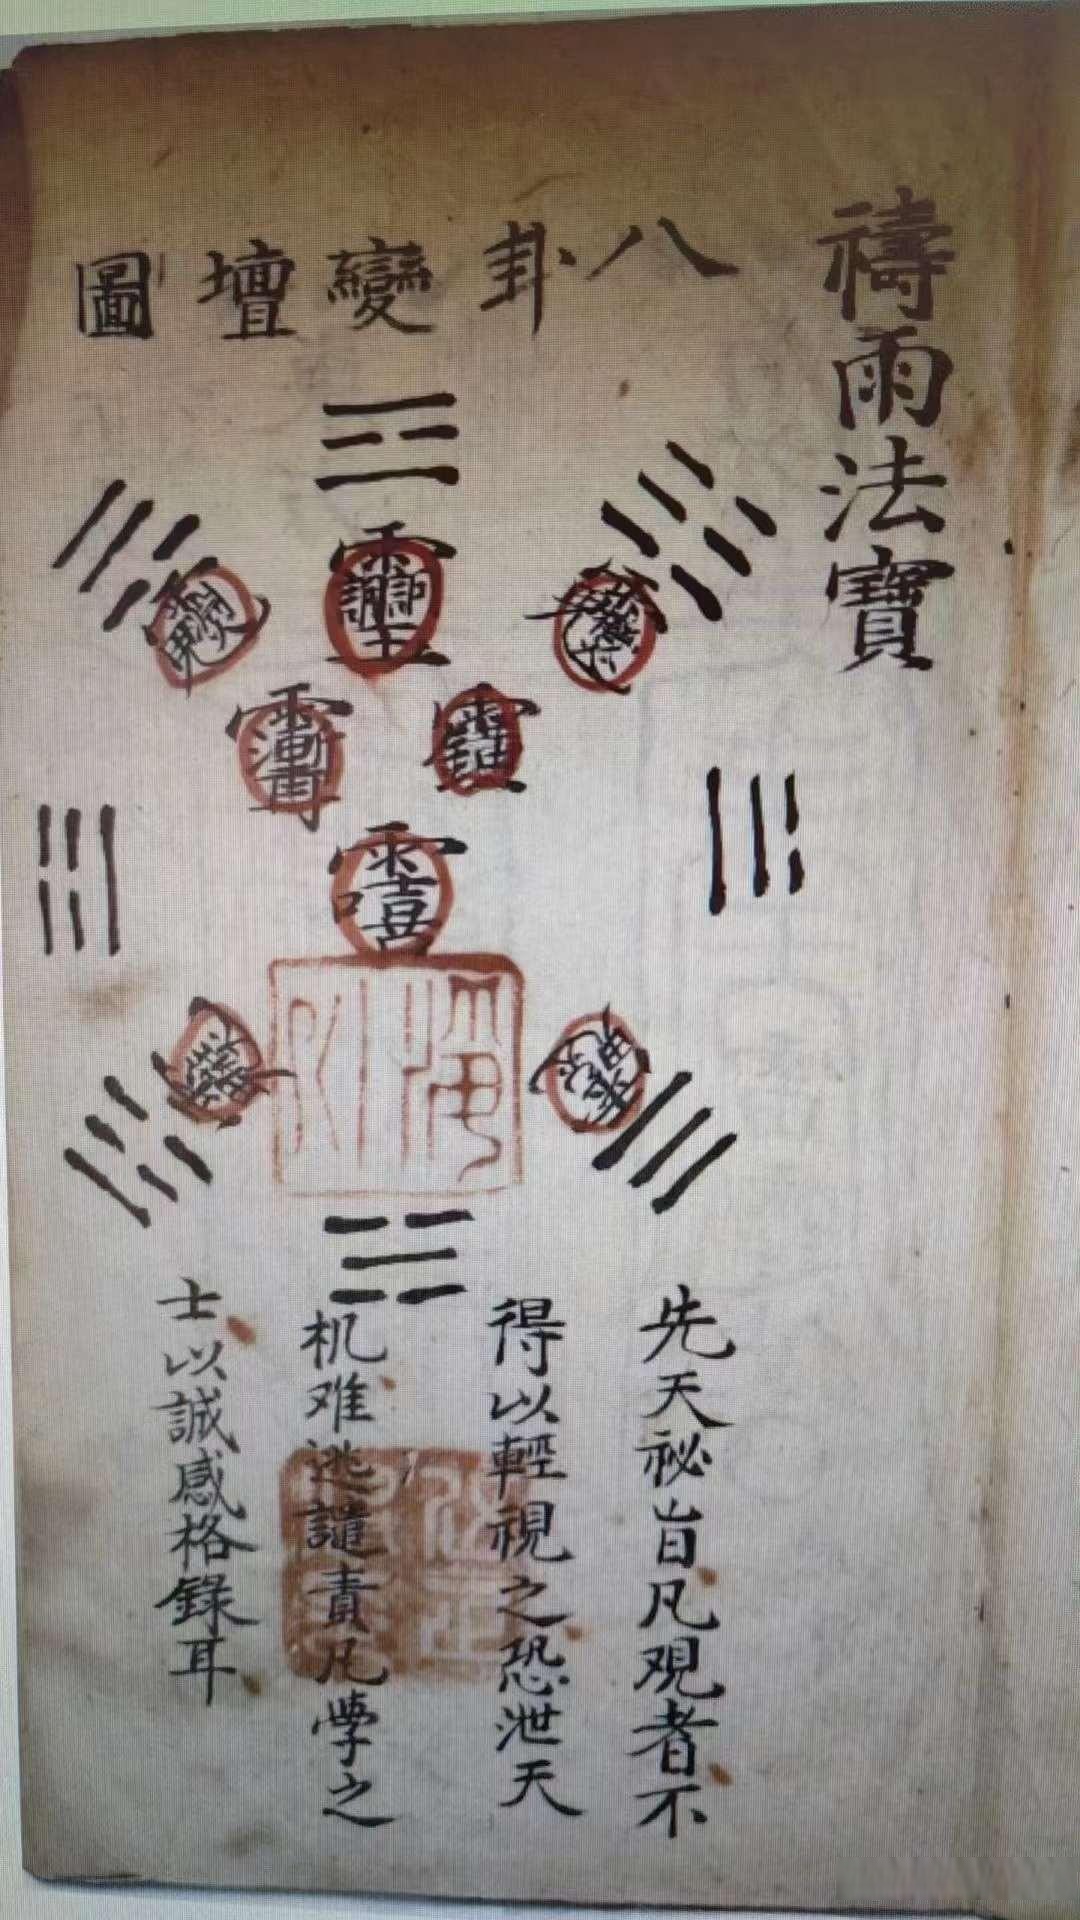 禱雨法寶
八卦變壇圖
先天祕旨凡观者不
得以輕視之恐泄天
机难逃譴責凡學之
士以誠感格錄耳